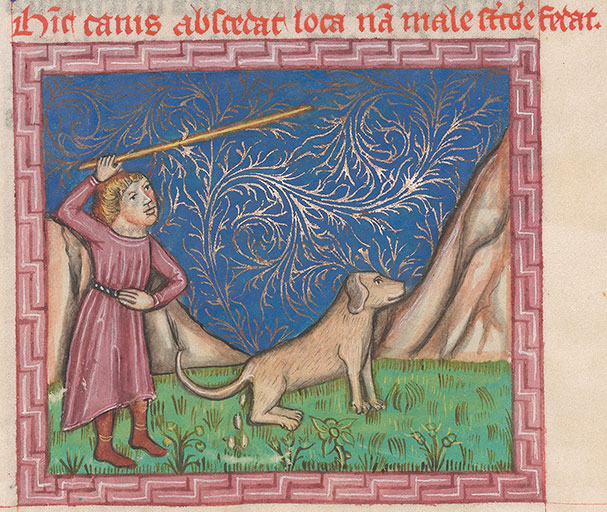 Hic canis abscedat loca nā male st̄cōe fedat.